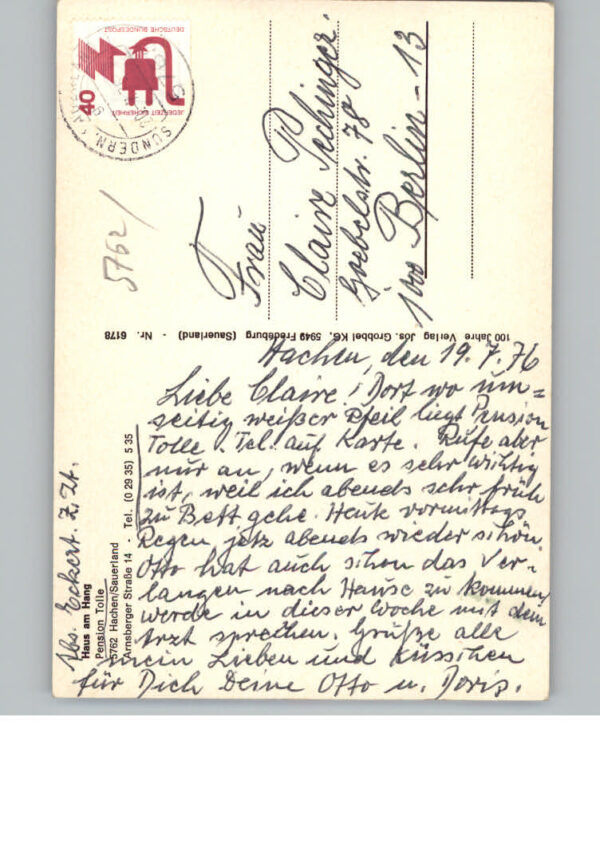 DEUTSCHE BUNDESPOST
JEDERZEIT SICHERHEIT
40
SUNDERN
5762/
Frau
Claire Pechinger.
Goebelstr. 78
1000 Berlin - 13
100 Jahre Verlag Jos. Grobbel KG, 5949 Fredeburg (Sauerland) - Nr. 6178
Hachen, den 19.7.76
Liebe Claire! Dort wo um=
seitig weißer Pfeil liegt Pension
Tolle. Tel. auf Karte. Rufe aber
nur an, wenn es sehr wichtig
ist, weil ich abends sehr früh
zu Bett gehe. Heute vormittags
Regen, jetz abends wieder schön.
Otto hat auch schon das Ver-
langen nach Hause zu kommen,
werde in dieser Woche mit dem
Arzt sprechen. Grüße alle
mein Lieben und Küsschen
für Dich Deine Otto u. Doris.
Abs. Eckert. Z. Zt.
Haus am Hang
Pension Tolle
5762 Hachen/Sauerland
Arnsberger Straße 14 - Tel. (0 29 35) 5 35